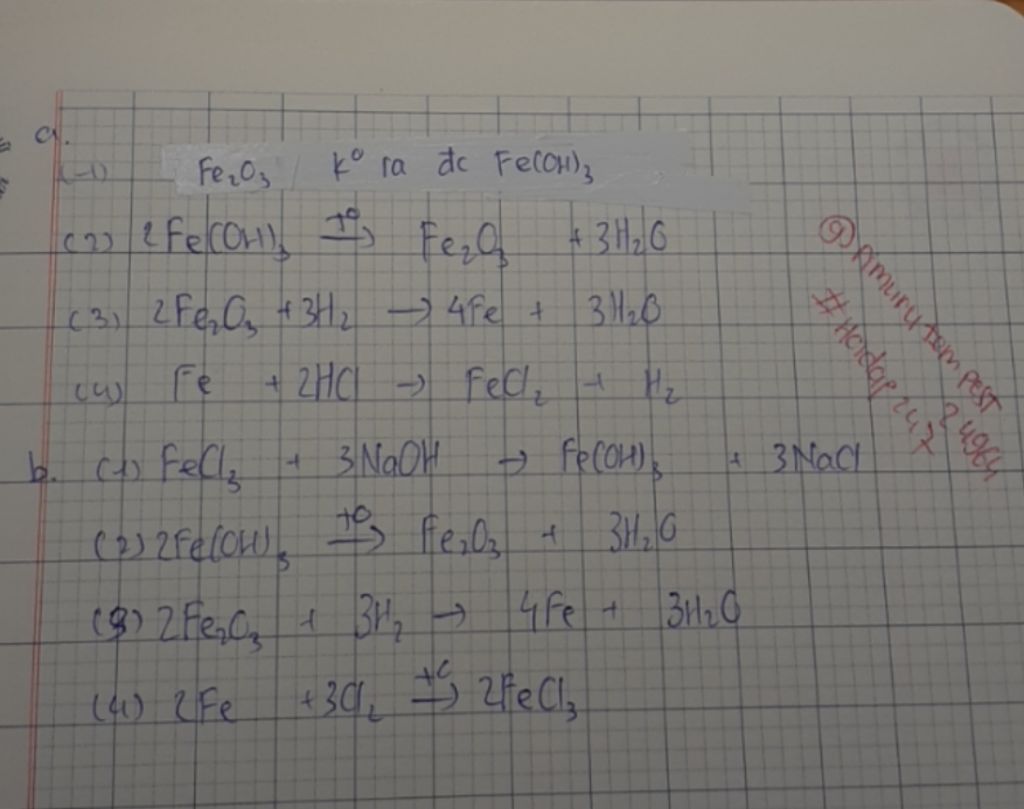 a.
(1) Fe₂O₃ k° ra đc Fe(OH)₃
(2) 2Fe(OH)₃ →t° Fe₂O₃ + 3H₂O
(3) 2Fe₂O₃ + 3H₂ → 4Fe + 3H₂O
(4) Fe + 2HCl → FeCl₂ + H₂
b. (1) FeCl₃ + 3NaOH → Fe(OH)₃ + 3NaCl
(2) 2Fe(OH)₃ →t° Fe₂O₃ + 3H₂O
(3) 2Fe₂O₃ + 3H₂ → 4Fe + 3H₂O
(4) 2Fe + 3Cl₂ →t° 2FeCl₃
#Hoidap247